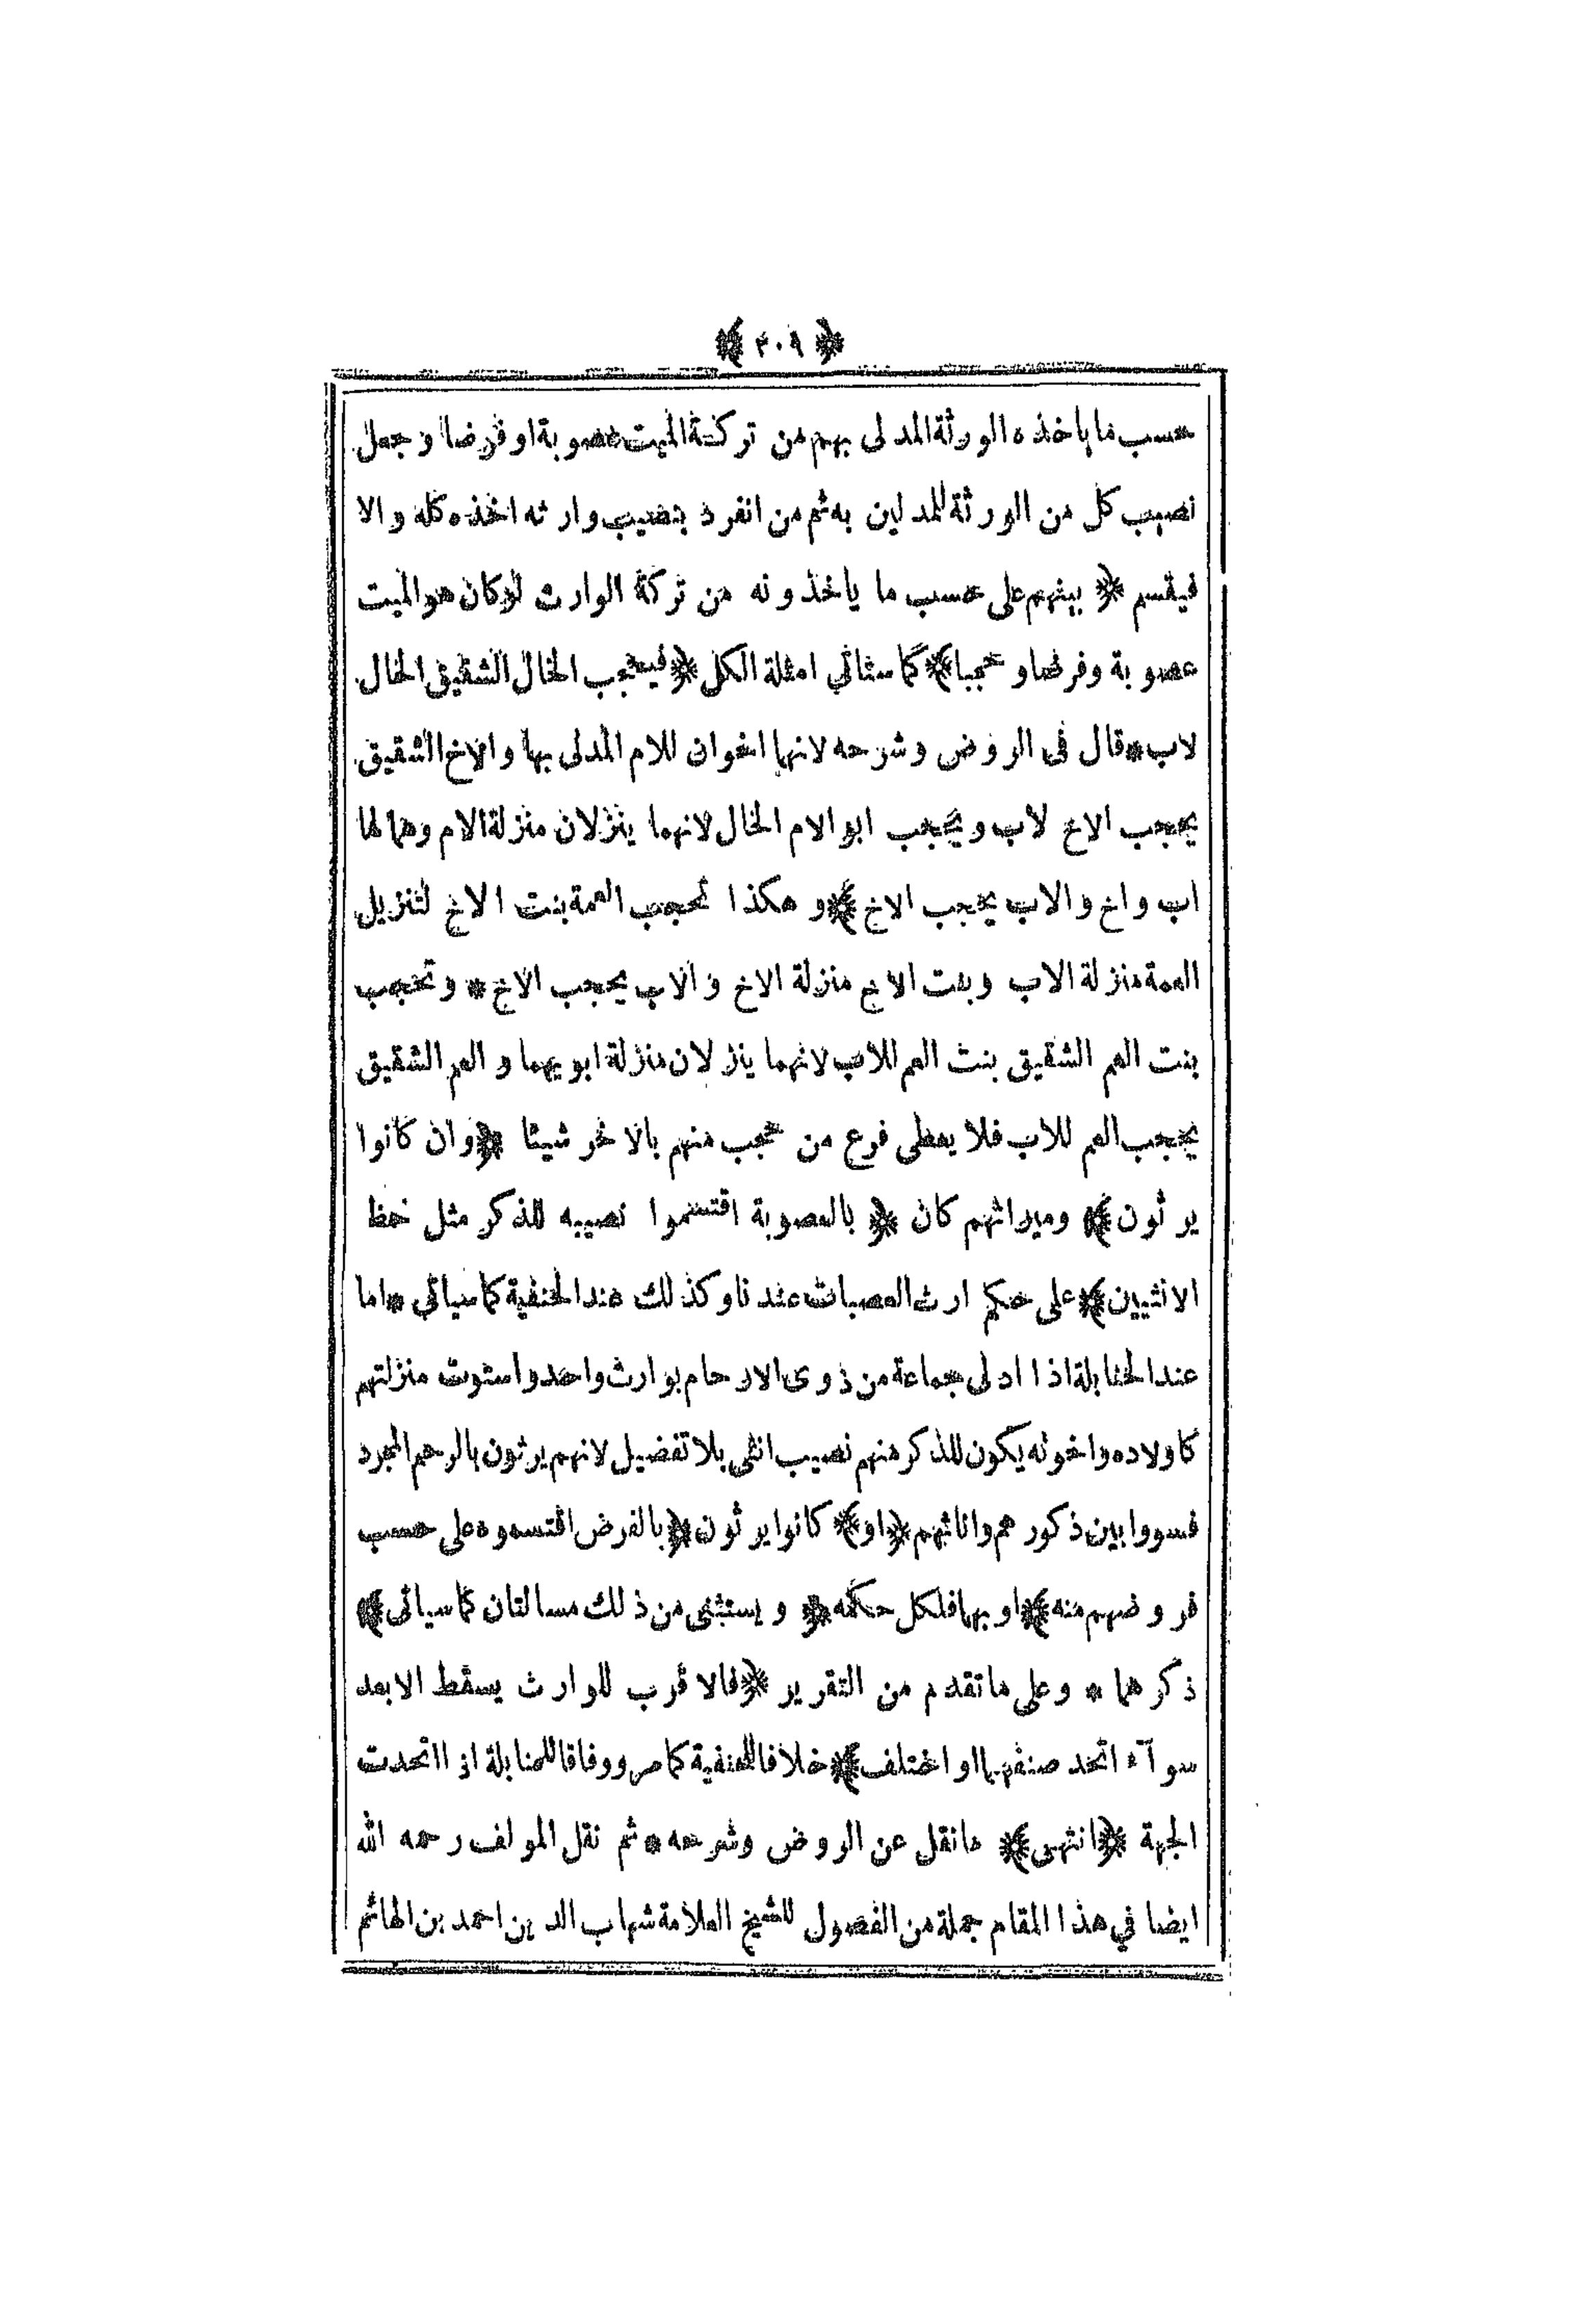 ﴿ ٣٠٩ ﴾
حسب ما ياخذه الورثة المدلى بهم من تركة الميت عصوبة او فرضا و جعل
نصيب كل من الورثة للمدلين به ثم من انفرد بنصيب وارثه اخذه كله والا
فيقسم ﴿ بينهم على حسب ما ياخذونه من تركة الوارث لو كان هو الميت
عصوبة وفرضا و حجبا ﴾ كما ستاتي امثلة الكل ﴿ فيحجب الخال الشقيق الخال
لاب * قال فى الروض وشرحه لانهما اخوان للام المدلى بها والاخ الشقيق
يحجب الاخ لاب ويحجب ابو الام الخال لانهما ينزلان منزلة الام وهما لها
اب واخ والاب يحجب الاخ ﴾ و هكذا تحجب العمة بنت الاخ لتنزيل
العمة منزلة الاب وبنت الاخ منزلة الاخ والاب يحجب الاخ * وتحجب
بنت العم الشقيق بنت العم للاب لانهما ينزلان منزلة ابويهما والعم الشقيق
يحجب العم للاب فلا يعطى فرع من حجب منهم بالاخر شيئا ﴿ وان كانوا
يرثون ﴾ وميراثهم كان ﴿ بالعصوبة اقتسموا نصيبه للذكر مثل حظ
الانثيين ﴾ على حكم ارث العصبات عندنا وكذلك عند الحنفية كما سياتي * اما
عند الحنابلة اذا ادلى جماعة من ذوى الارحام بوارث واحد واستوت منزلتهم
كاولاده واخوته يكون للذكر منهم نصيب انثى بلا تفضيل لانهم يرثون بالرحم المجرد
فسووا بين ذكورهم واناثهم ﴿ او ﴾ كانوا يرثون ﴿ بالفرض اقتسموه على حسب
فروضهم منه ﴾ او بهما فلكل حكمه ﴿ ويستثنى من ذلك مسالتان كما سياتى ﴾
ذكرهما * وعلى ما تقدم من التقرير ﴿ فالاقرب للوارث يسقط الابعد
سوآء اتحد صنفهما او اختلف ﴾ خلافا للحنفية كما مر ووفاقا للحنابلة اذا اتحدت
الجهة ﴿ انتهى ﴾ ما نقل عن الروض وشرحه * ثم نقل المولف رحمه الله
ايضا في هذا المقام جملة من الفصول للشيخ العلامة شهاب الدين احمد بن الهائم